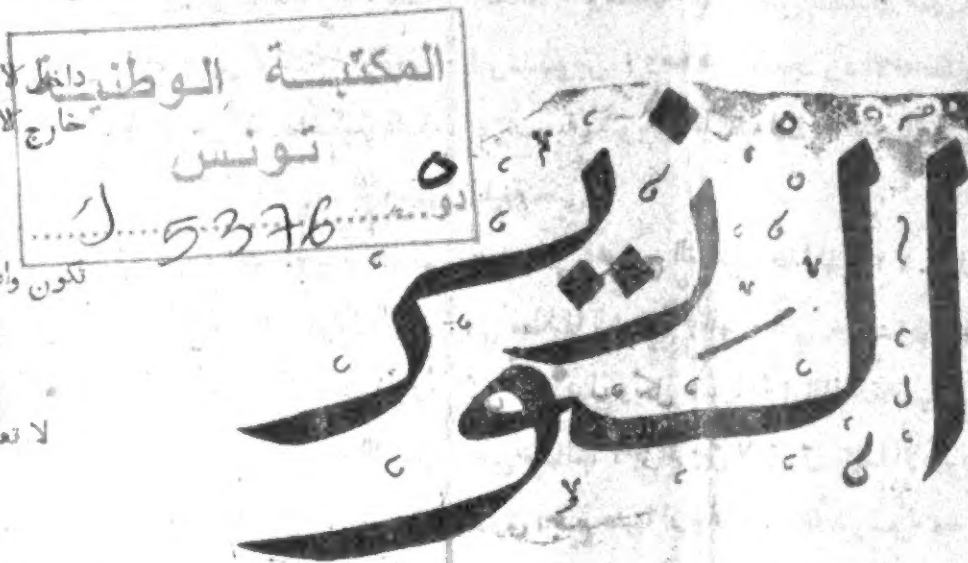 المكتبة الوطنية
تونس
دو 5376
داخل
خارج
تكون
الوزير